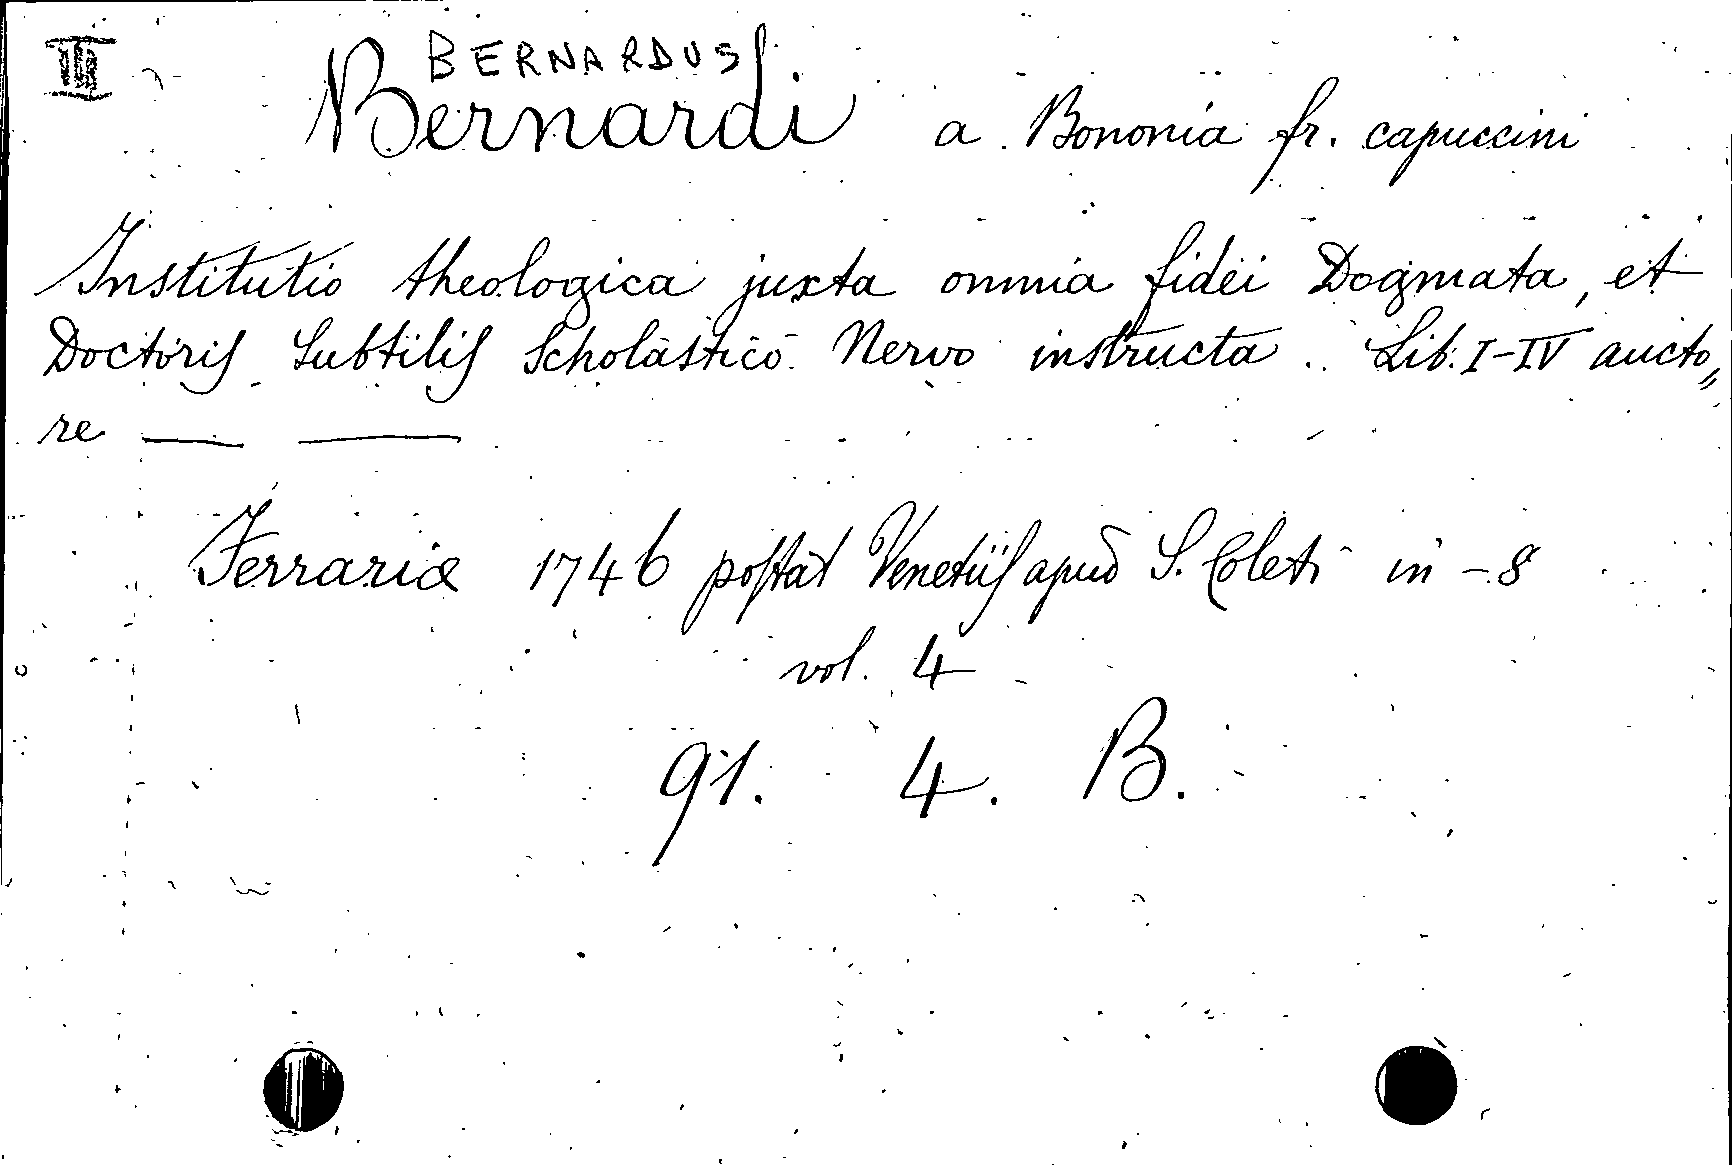 III
BERNARDUS
Bernardi a Bononia fr. capuccini
Institutio theologica juxta omnia fidei Dogmata, et
Doctoris Subtilis Scholastico Nervo instructa. Lib. I-IV aucto„
re — —
Ferrariæ 1746 postat Venetiis apud S. Coleti in -8
vol. 4
91. 4. B.